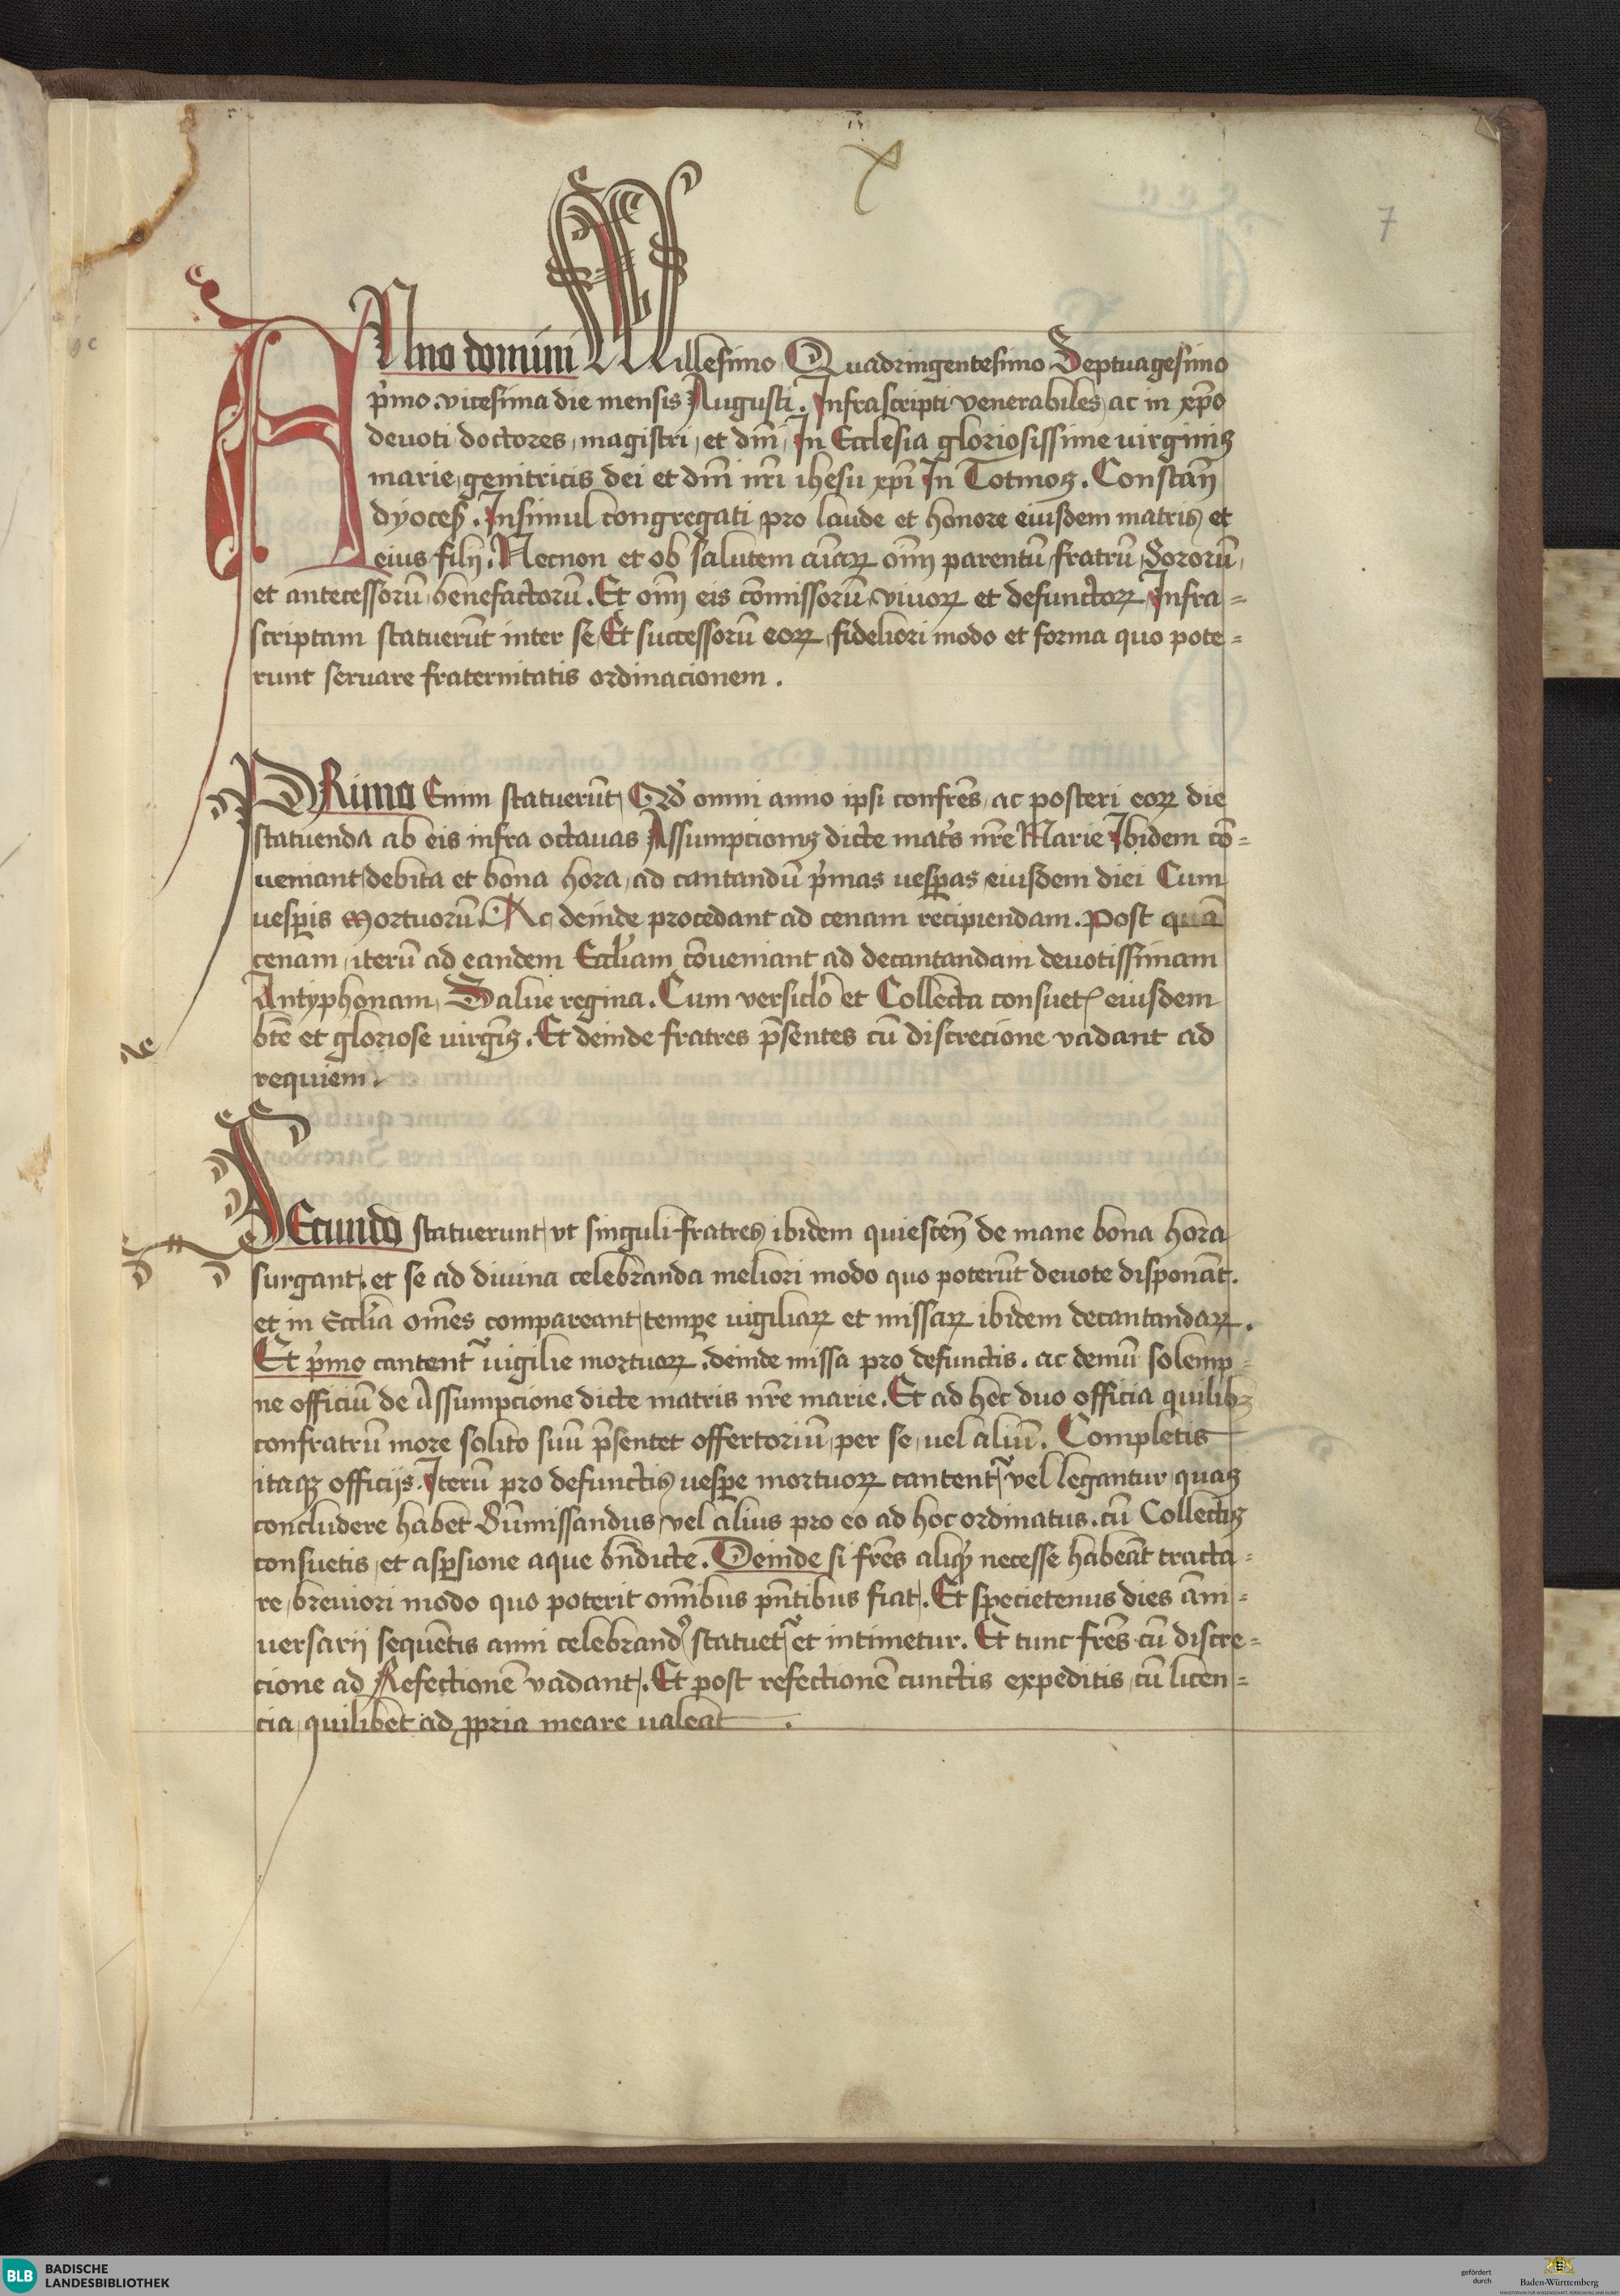 7
ANno domini Millesimo Quadringentesimo Septuagesimo
p̾mo vicesima die mensis Augusti. Infrascripti venerabiles ac in xp̄o
deuoti doctores, magistri, et dn̄i, In Ecclesia gloriosissime uirginis
marie, genitricis dei et dn̄i nr̄i ihesu xp̄i In Totmos. Constan̄
dyoces̄. Insimul congregati pro laude et honore eiusdem matris et
eius filij. Necnon et ob salutem aīarꝝ oīm parentū fratrū Sororū,
et antecessorū, benefactorū. Et oīm eis cōmissorū, viuorꝝ et defunctorꝝ Infra=
scriptam statuerūt inter se, Et successorū eorꝝ fideliori modo et forma quo pote=
runt seruare fraternitatis ordinacionem.
PRimo Enim statuerūt, Qd̾ omni anno ipsi confrēs, ac posteri eorꝝ die
statuenda ab eis infra octauas Assumpcionis dicte mat̾s nr̄e Marie Ibidem cō=
ueniant debita et bona hora, ad cantandū p̾mas uesꝑas eiusdem diei Cum
uesꝑis Mortuorū. Ac deinde procedant ad cenam recipiendam. Post quā
cenam, iterū ad eandem Eccl̾iam cōueniant ad decantandam deuotissimam
Antyphonam, Salue regina. Cum versicl̾o et Collecta consuet̄ eiusdem
bt̄e et gloriose uirgīs. Et deinde fratres p̄sentes cū discrecione vadant ad
requiem.
SEcundo statuerunt, vt singuli fratres ibidem quiescen̄ de mane bona hora
surgant. et se ad diuina celebranda meliori modo quo poterūt deuote disponāt.
et in Eccl̾ia om̄es compareant, temꝑe uigiliarꝝ et missarꝝ ibidem decantandarꝝ.
Et p̾mo cantent᷑ uigilie mortuorꝝ. deinde missa pro defunctis. ac demū solemp=
ne officiū de Assumpcione dicte matris nr̄e marie. Et ad hec duo officia quilibꝫ
confratrū more solito suū p̄sentet offertoriū, per se, uel aliū. Completis
itaqꝫ officijs. Iterū pro defunctis uesꝑe mortuorꝝ cantent᷑ vel legantur, quas
concludere habet Sūmissandus, vel alius pro eo ad hoc ordinatus. cū Collectis
consuetis, et asꝑsione aque bn̄dicte. Deinde si frēs aliqd̾ necesse habeāt tracta=
re, breuiori modo quo poterit om̄ibus pn̄tibus fiat. Et specietenus dies āni=
uersarij sequētis anni celebrandꝰ statuet᷑ et intimetur. Et tunc frēs cū discre=
cione ad Refectionē vadant. Et post refectionē cunctis expeditis, cū licen=
cia, quilibet ad ꝓpria meare ualeāt.
BLB BADISCHE
LANDESBIBLIOTHEK
gefördert
durch
Baden-Württemberg